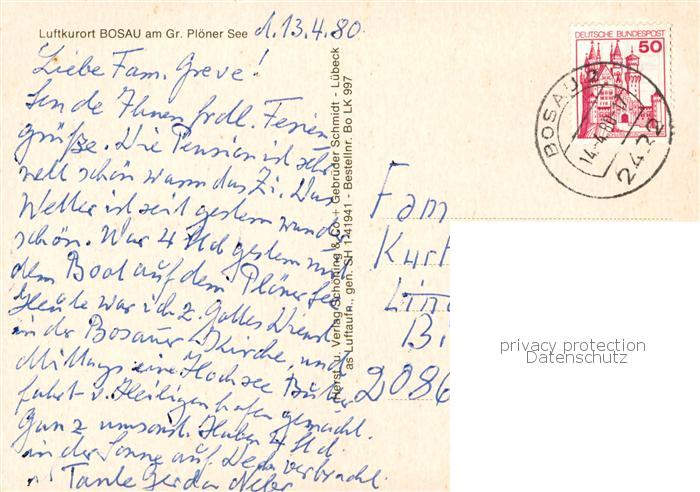 Luftkurort BOSAU am Gr. Plöner See
d. 13.4.80.
Liebe Fam. Greve!
Sende Ihnen frdl. Ferien
grüße. Die Pension ist sehr
nett schön warm das Zi. Das
Wetter ist seit gestern wunder
schön. War 4 Std gestern mit
dem Boot auf dem Plöner See
Heute war ich z. Gottes Dienst
in der Bosauer Kirche, und
Mittags eine Hochsee
fahrt v. Heiligenhafen gemacht.
Ganz umsonst. Haben 4 Std.
in der Sonne auf Deck verbracht.
Tante Gerda
Herst. u. Verlag Schöning & Co. + Gebrüder Schmidt - Lübeck
as Luftaufn., gen. SH 1-41941 - Bestellnr. Bo LK 997
DEUTSCHE BUNDESPOST
50
BOSAU 2
14.-4.80-17
2422
Fam
Kurt
Bi
2086
privacy protection
Datenschutz